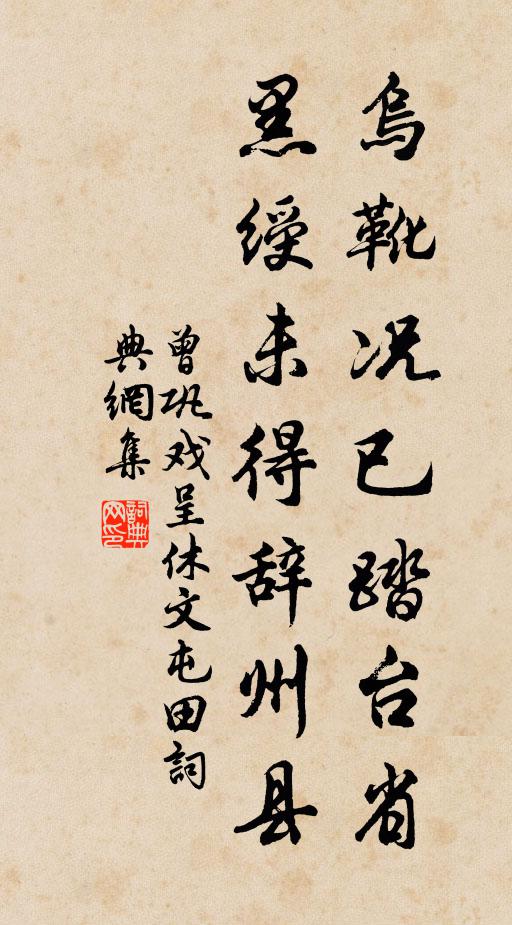 烏靴况已踏台省
黑綬未得辞州县
曾巩戏呈休文屯田詞
典網集
詞典
网印